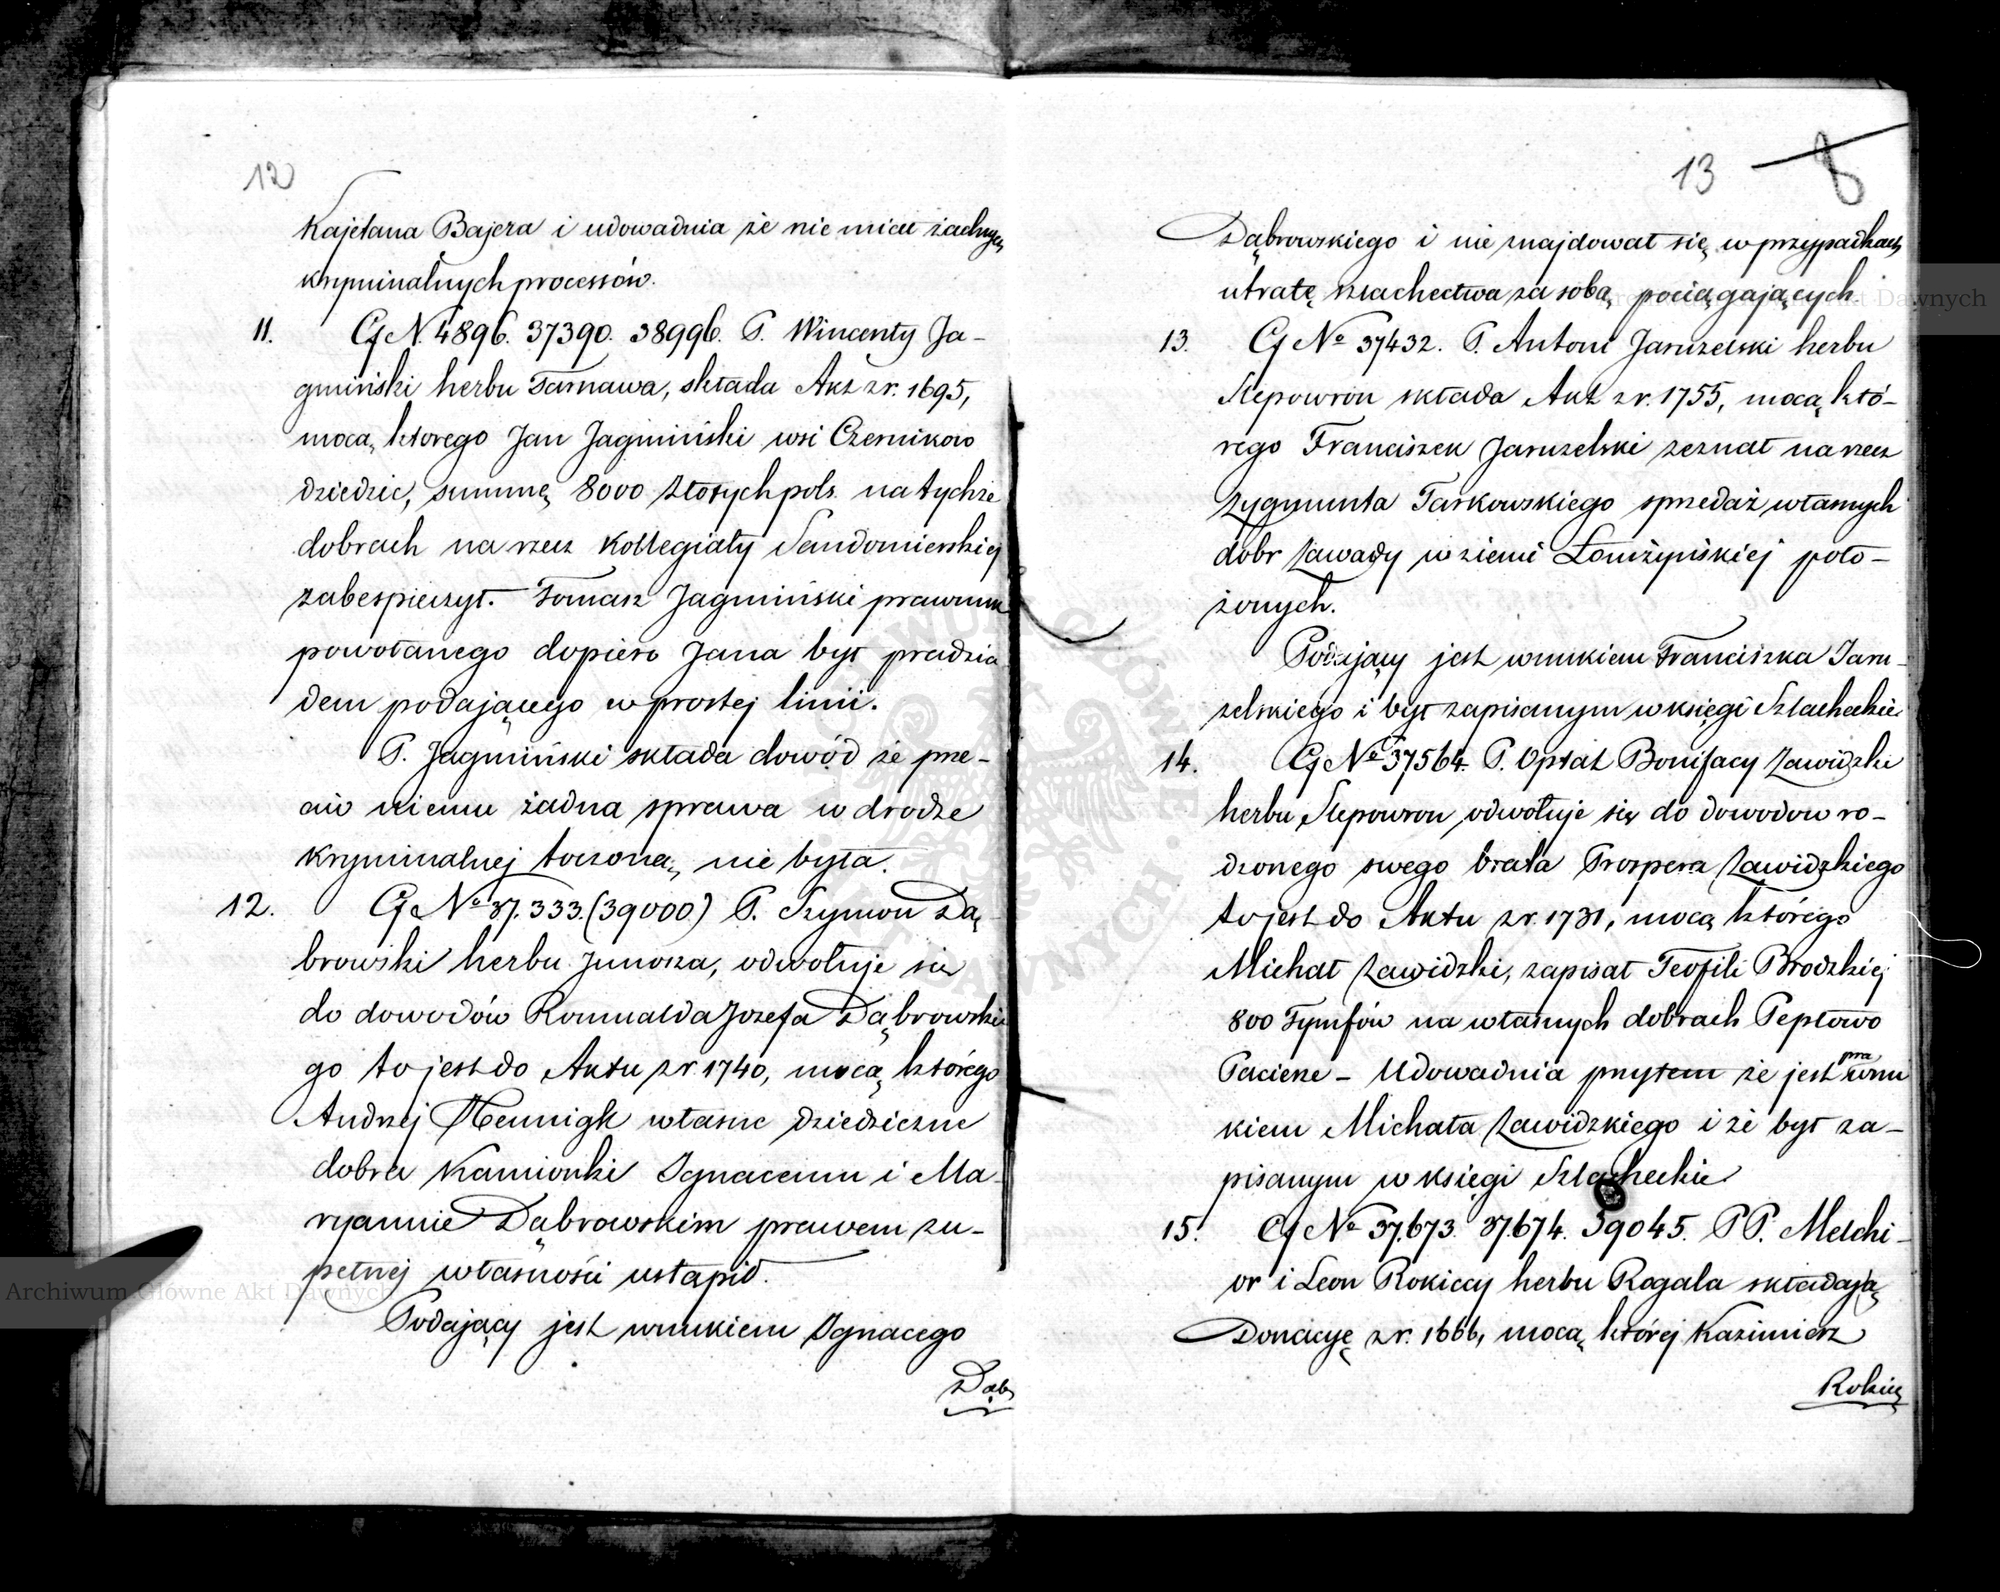 12
Kajetana Bajera i udowadnia że nie miał żadnych
kryminalnych processów.
11. Cf N. 4896. 37390. 38996. P. Wincenty Ja-
gmiński herbu Tarnawa, składa Akt z r. 1695,
mocą ktorego Jan Jagmiński wsi Czernikow
dziedzic, summę 8000 złotych pols. na tychże
dobrach na rzecz Kollegiaty Sandomierskiej
zabespieczył. Tomasz Jagmiński prawnuk
powołanego dopiero Jana był pradzia
dem podającego w prostej linii.
P. Jagmiński składa dowód że prze-
ciw niemu żadna sprawa w drodze
kryminalnej toczoną nie była.
12. Cf No 37.333. (39000) P. Szymon Dą-
browski herbu Junosza, odwołuje się
do dowodów Romualda Jozefa Dąbrowskie
go to jest do Aktu z r 1740, mocą którego
Andrzej Hennigk własne dziedziczne
dobra Kamionki Ignacemu i Ma-
ryannie Dąbrowskim prawem zu-
pełnej własności ustąpił.
Podający jest wnukiem Ignacego
Dąb
13 8
Dąbrowskiego i nie znajdował się w przypadkach
utratę szlachectwa za sobą pociągających.
13. Cf No 37432. P. Antoni Jaruzelski herbu
Slepowron składa Akt z r. 1755, mocą któ-
rego Franciszek Jaruzelski zeznał na rzecz
Zygmunta Taskowskiego sprzedaż własnych
dobr Zawady w ziemi Łomżyńskiej poło-
żonych.
Podający jest wnukiem Franciszka Jaru-
zelskiego i był zapisanym w księgi Szlacheckie
14. Cf No 37564. P. Optat Bonifacy Zawidzki
herbu Slepowron odwołuje się do dowodow ro-
dzonego swego brata Prospera Zawidzkiego
to jest do Aktu z r. 1731, mocą którego
Michał Zawidzki, zapisał Teofili Brodzkiej
800 Tymfów na własnych dobrach Pepłowo
Paciene - Udowadnia przytem że jest pra
wnu
kiem Michała Zawidzkiego i że był za-
pisanym w księgi Szlacheckie
15. Cf No 37.673. 37.674. 39045. PP. Melchi-
or i Leon Rokiccy herbu Rogala składają
Donacyę z r. 1666, mocą której Kazimierz
Rokic
Archiwum Główne Akt Dawnych